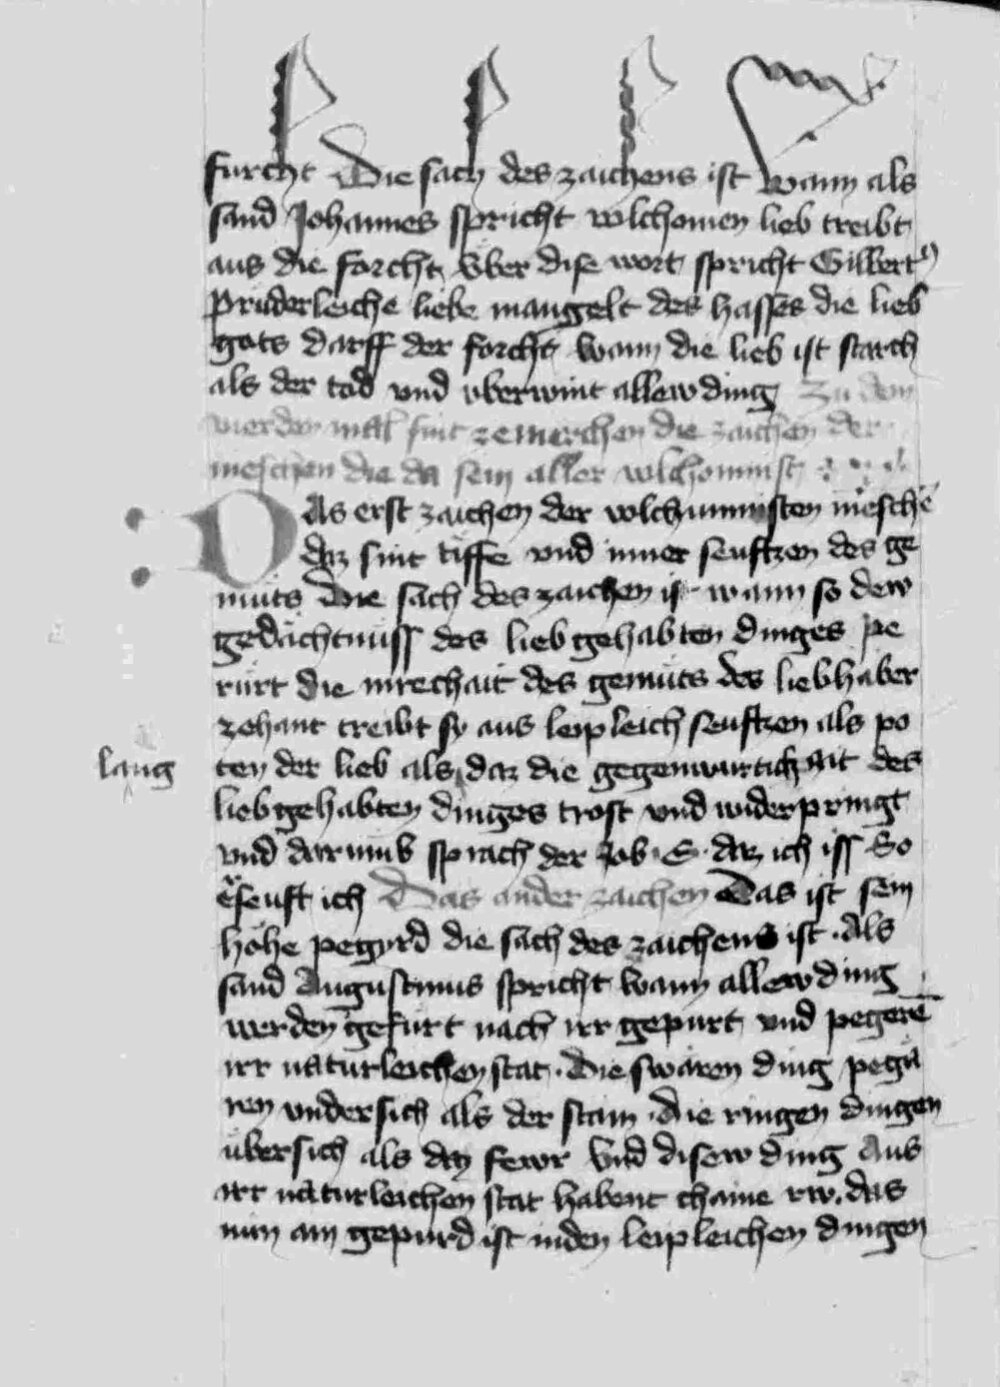 furcht Die sach des zaichens ist wann als
sand Johannes spricht volchomen lieb treibt
aus die forcht Vber dise wort spricht Gilbertus
prüderleiche liebe mangelt des hasses die lieb
gots darff der forcht wann die lieb ist starch
als der tod vnd vberwint allew ding Zu dem
vierden mal sint ze merchen die zaichen der
meschen die da sein aller volchomnist
Das erst zaichen der volchummisten mesche
daz sint tiffe vnd inner seuftzen des ge
müts Die sach des zaichen is wann so dew
gedächtnüss des lieb gehabten dinges pe
rürt die des gemüts des liebhaber
zehant treibt sy aus leipleich seuftzen als po
lang
ten der lieb als daz die gegenwürtichait des
lieb gehabten dinges trost vnd widerpringt
vnd darumb sprach der Job E daz ich iss So
erseuft ich Das ander zaichen Das ist sein
höhe pegyrd die sach des zaichens ist Als
sand Augustinus spricht wann allew ding
werden gefürt nach irr gepurt vnd pegere
irr naturleichen stat Die swären ding pege
ren vndersich als der stain die ringen dingen
übersich als daz fewr Vnd disew ding aus
irr naturleichen stat habent chaine rw das
nün ain gepurd ist in den leipleichen dingen